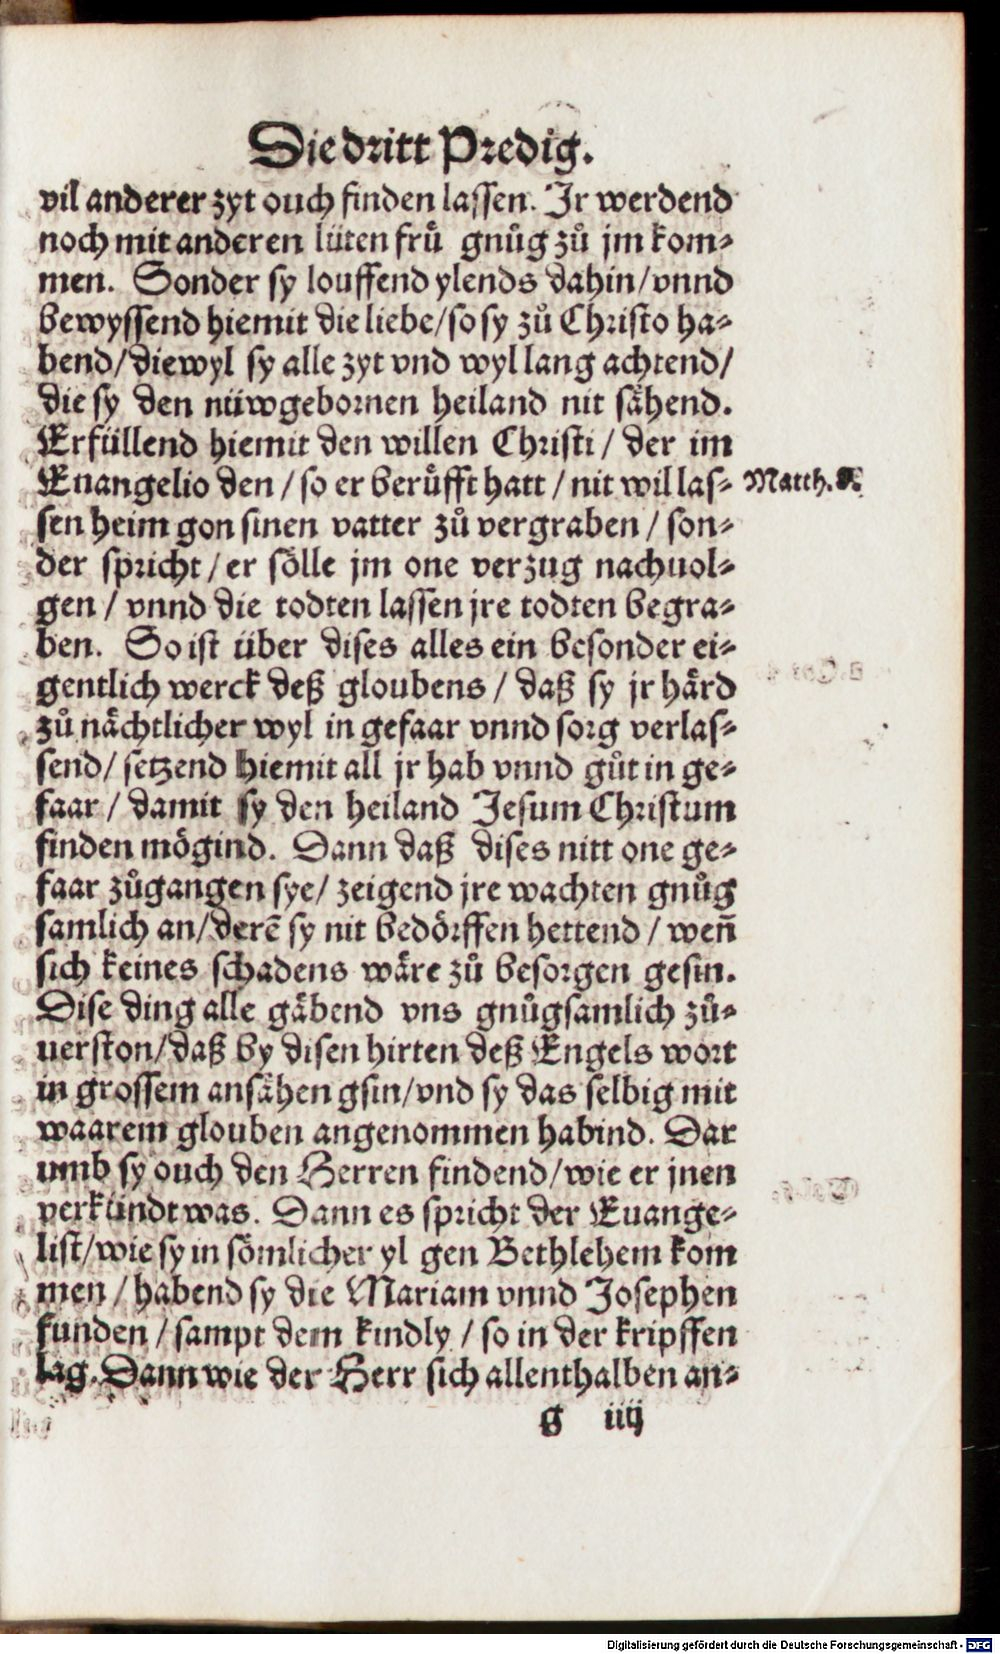 Die dritt Predig.
vil anderer zyt ouch finden lassen. Ir werdend
noch mit anderen lüten frü gnůg zů jm kom-
men. Sonder sy louffend ylends dahin/vnnd
bewyssend hiemit die liebe/so sy zů Christo ha-
bend/diewyl sy alle zyt vnd wyl lang achtend/
die sy den nüwgebornen heiland nit sähend.
Erfüllend hiemit den willen Christi/ der im
Euangelio den/so er berüfft hatt/nit wil las-
Matth.
sen heim gon sinen vatter zů vergraben/ son-
der spricht/er sölle jm one verzug nachuol-
gen/ vnnd die todten lassen jre todten begra-
ben. So ist über dises alles ein besonder ei-
gentlich werck deß gloubens/ daß sy jr härd
zů nächtlicher wyl in gefaar vnnd sorg verlas-
send/ setzend hiemit all jr hab vnnd gůt in ge-
faar/ damit sy den heiland Jesum Christum
finden mögind. Dann daß dises nitt one ge-
faar zůgangen sye/ zeigend jre wachten gnůg
samlich an/derē sy nit bedörffen hettend/ weñ
sich keines schadens wäre zů besorgen gesin.
Dise ding alle gäbend vns gnůgsamlich zů-
uerston/daß by disen hirten deß Engels wort
in grossem ansähen gsin/vnd sy das selbig mit
waarem glouben angenommen habind. Dar
umb sy ouch den Herren findend/wie er jnen
verkündt was. Dann es spricht der Euange-
list/wie sy in sömlicher yl gen Bethlehem kom
men/ habend sy die Mariam vnnd Josephen
funden/ sampt dem kindly/ so in der kripffen
lag. Dann wie der Herr sich allenthalben an-
g iiij
Digitalisierung gefördert durch die Deutsche Forschungsgemeinschaft - DFG